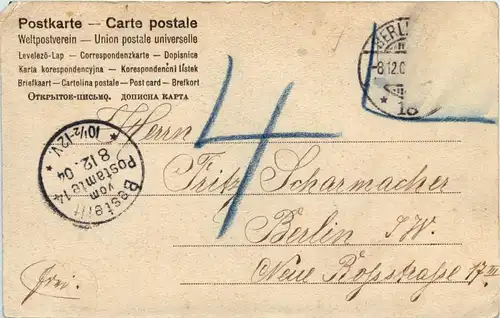 Postkarte — Carte postale
Weltpostverein — Union postale universelle
Levelező-Lap — Correspondenzkarte — Dopisnice
Karta korespondencyjna — Korespondenční lístek
Briefkaart — Cartolina postale — Post card — Brefkort
Открытое-письмо. дописна карта
BERLIN
-8.12.0
* 18
4
Bestellt
vom
Postamte 14
8.12. 04
* 10½-12V. *
Herrn
Fritz Scharmacher
Berlin S.W.
Neue Roßstraße 17 III
frei.